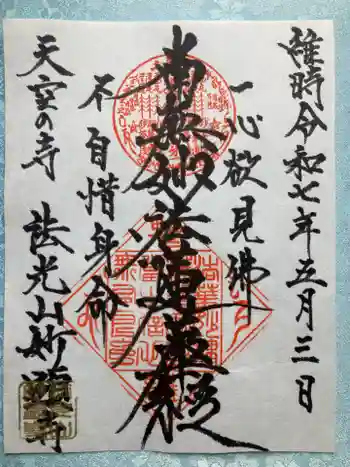 維時令和七年五月三日
一心欲見佛
南無妙法蓮華経
不自惜身命
天空の寺 法光山妙顕寺